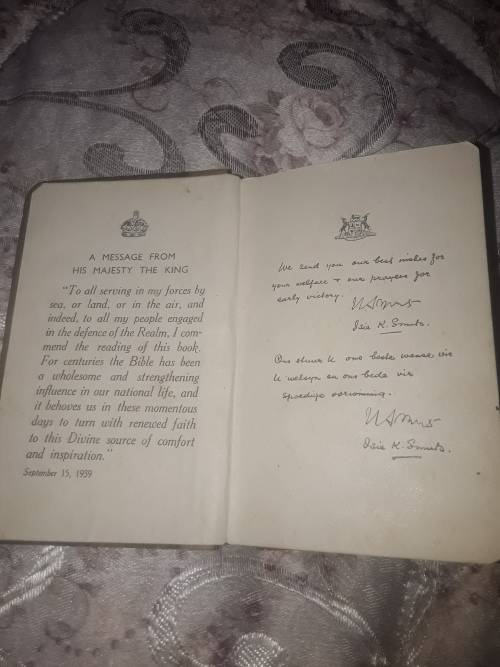 A MESSAGE FROM
HIS MAJESTY THE KING
"To all serving in my forces by
sea, or land, or in the air, and
indeed, to all my people engaged
in the defence of the Realm, I com-
mend the reading of this book.
For centuries the Bible has been
a wholesome and strengthening
influence in our national life, and
it behoves us in these momentous
days to turn with renewed faith
to this Divine source of comfort
and inspiration."
September 15, 1939
We send you our best wishes for
your welfare + our prayers for
early victory.
Isie K. Smuts.
Ons stuur U ons beste wense vir
U welsyn en ons bede vir
spoedige oorwinning.
Isie K. Smuts.